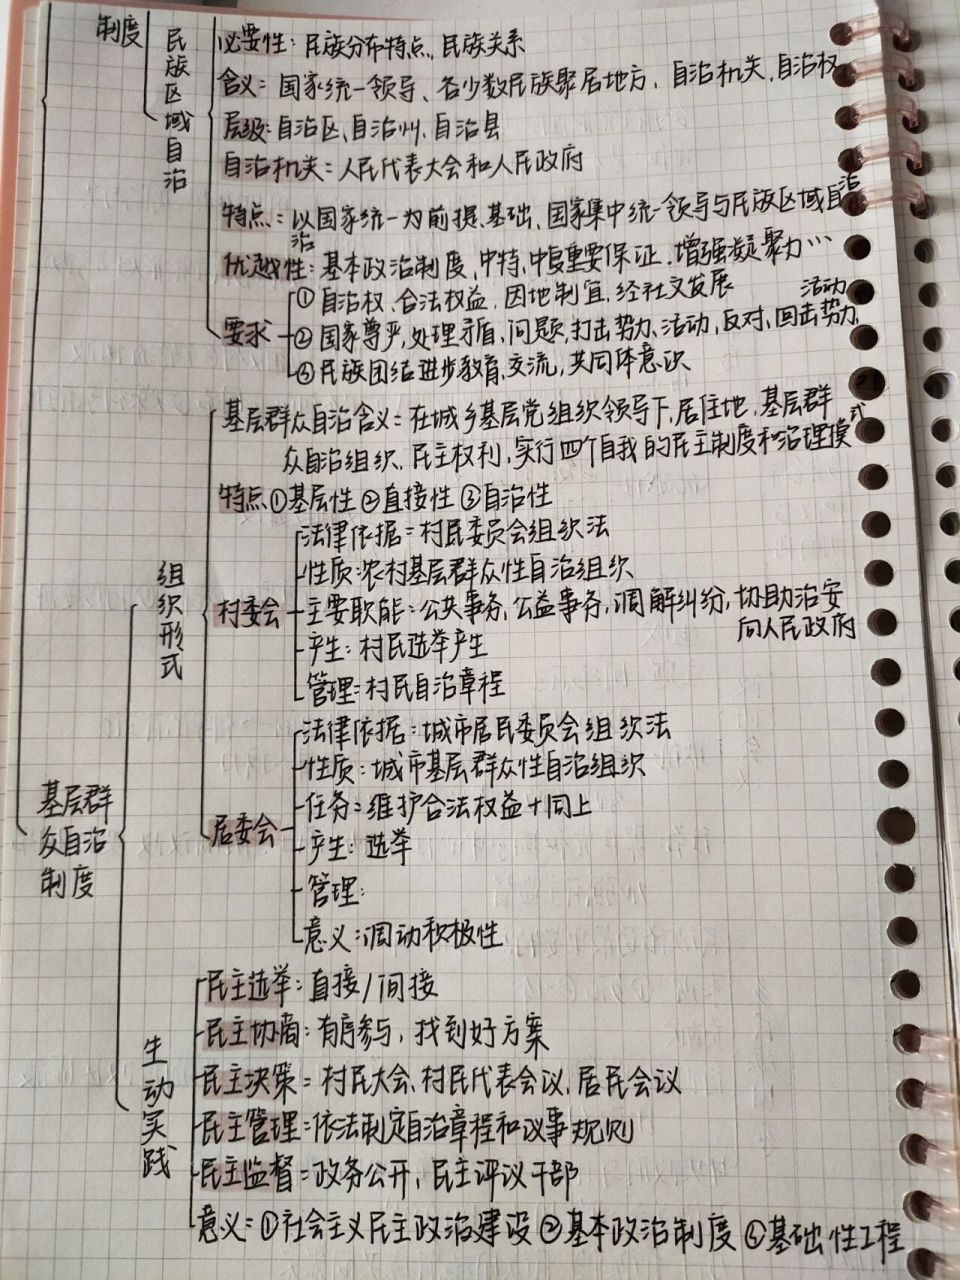 制度
民族区域自治
必要性：民族分布特点、民族关系
含义：国家统一领导、各少数民族聚居地方、自治机关、自治权
层级：自治区、自治州、自治县
自治机关：人民代表大会和人民政府
特点：以国家统一为前提、基础、国家集中统一领导与民族区域自治
治
优越性：基本政治制度、中特、中复重要保证、增强凝聚力…
要求
①自治权、合法权益、因地制宜、经社文发展
②国家尊严,处理矛盾、问题,打击势力、活动,反对、回击势力、活动
③民族团结进步教育,交流,共同体意识
基层群众自治制度
组织形式
基层群众自治含义：在城乡基层党组织领导下,居住地、基层群
众自治组织、民主权利,实行四个自我的民主制度和治理模式
特点①基层性②直接性③自治性
村委会
法律依据：村民委员会组织法
性质：农村基层群众性自治组织
主要职能：公共事务,公益事务,调解纠纷,协助治安
向人民政府
产生：村民选举产生
管理：村民自治章程
居委会
法律依据：城市居民委员会组织法
性质：城市基层群众性自治组织
任务：维护合法权益+同上
产生：选举
管理：
意义：调动积极性
生动实践
民主选举：直接/间接
民主协商：有序参与,找到好方案
民主决策：村民大会、村民代表会议、居民会议
民主管理：依法制定自治章程和议事规则
民主监督：政务公开,民主评议干部
意义：①社会主义民主政治建设②基本政治制度③基础性工程